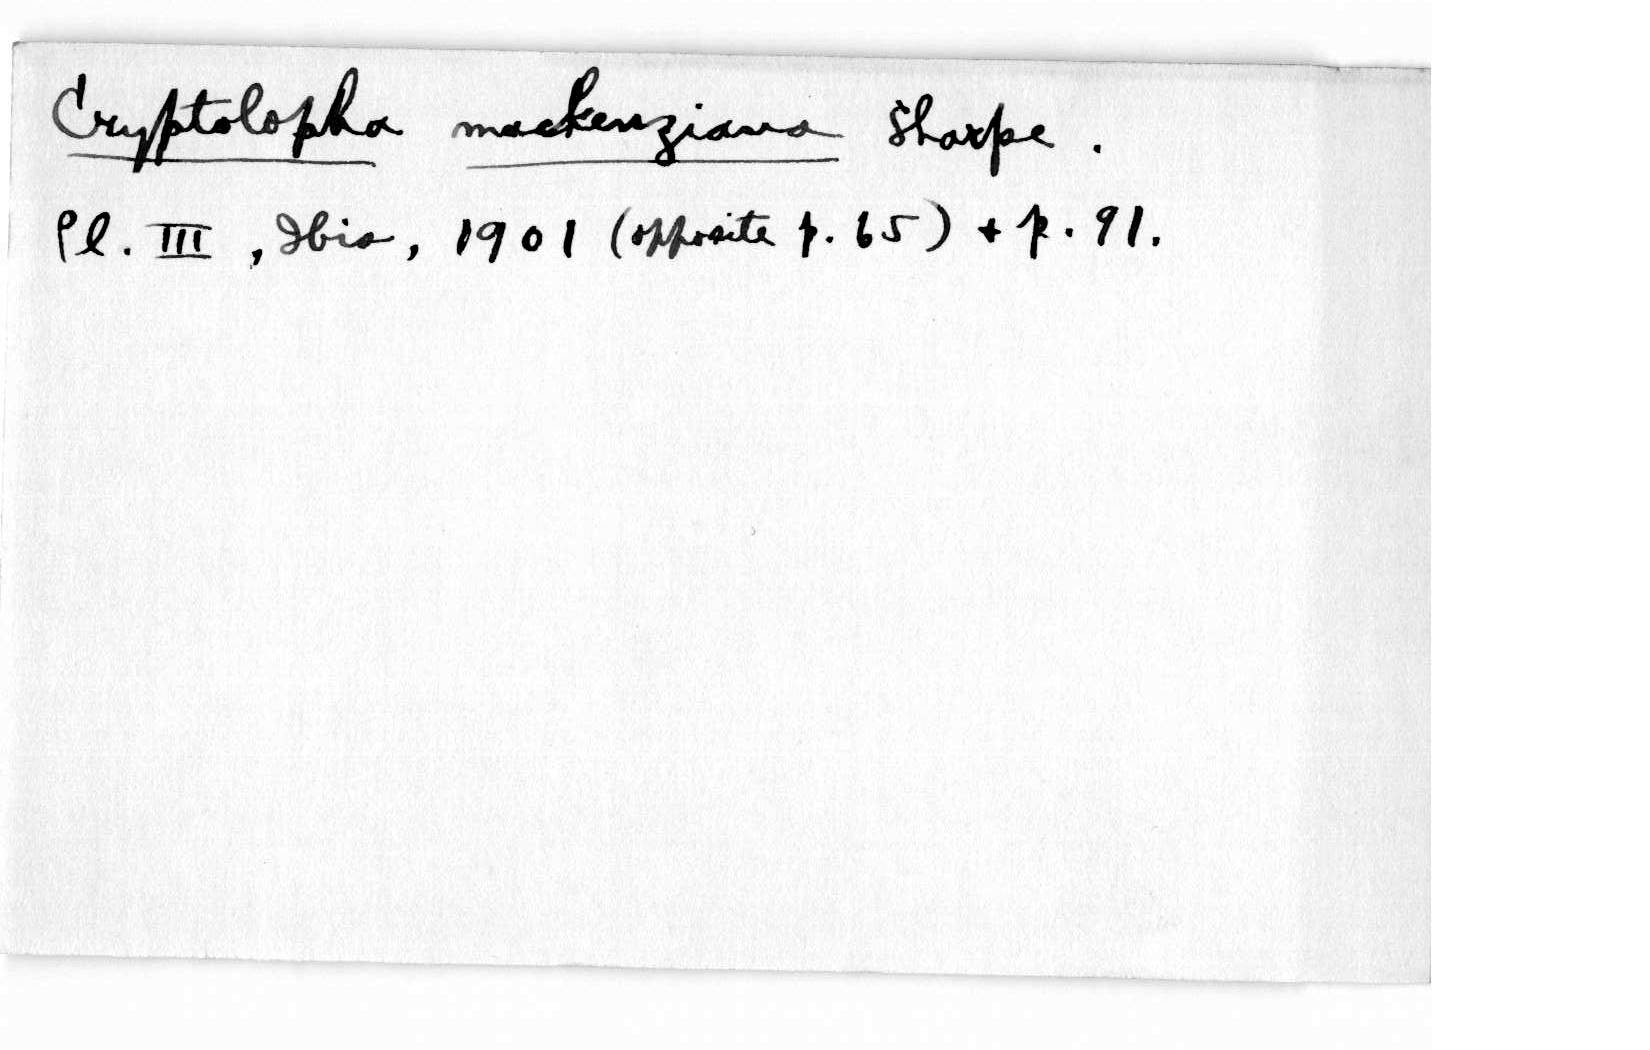 Cryptolopha mackenziana Sharpe.
Pl. III, Ibis, 1901 (opposite p. 65) + p. 91.